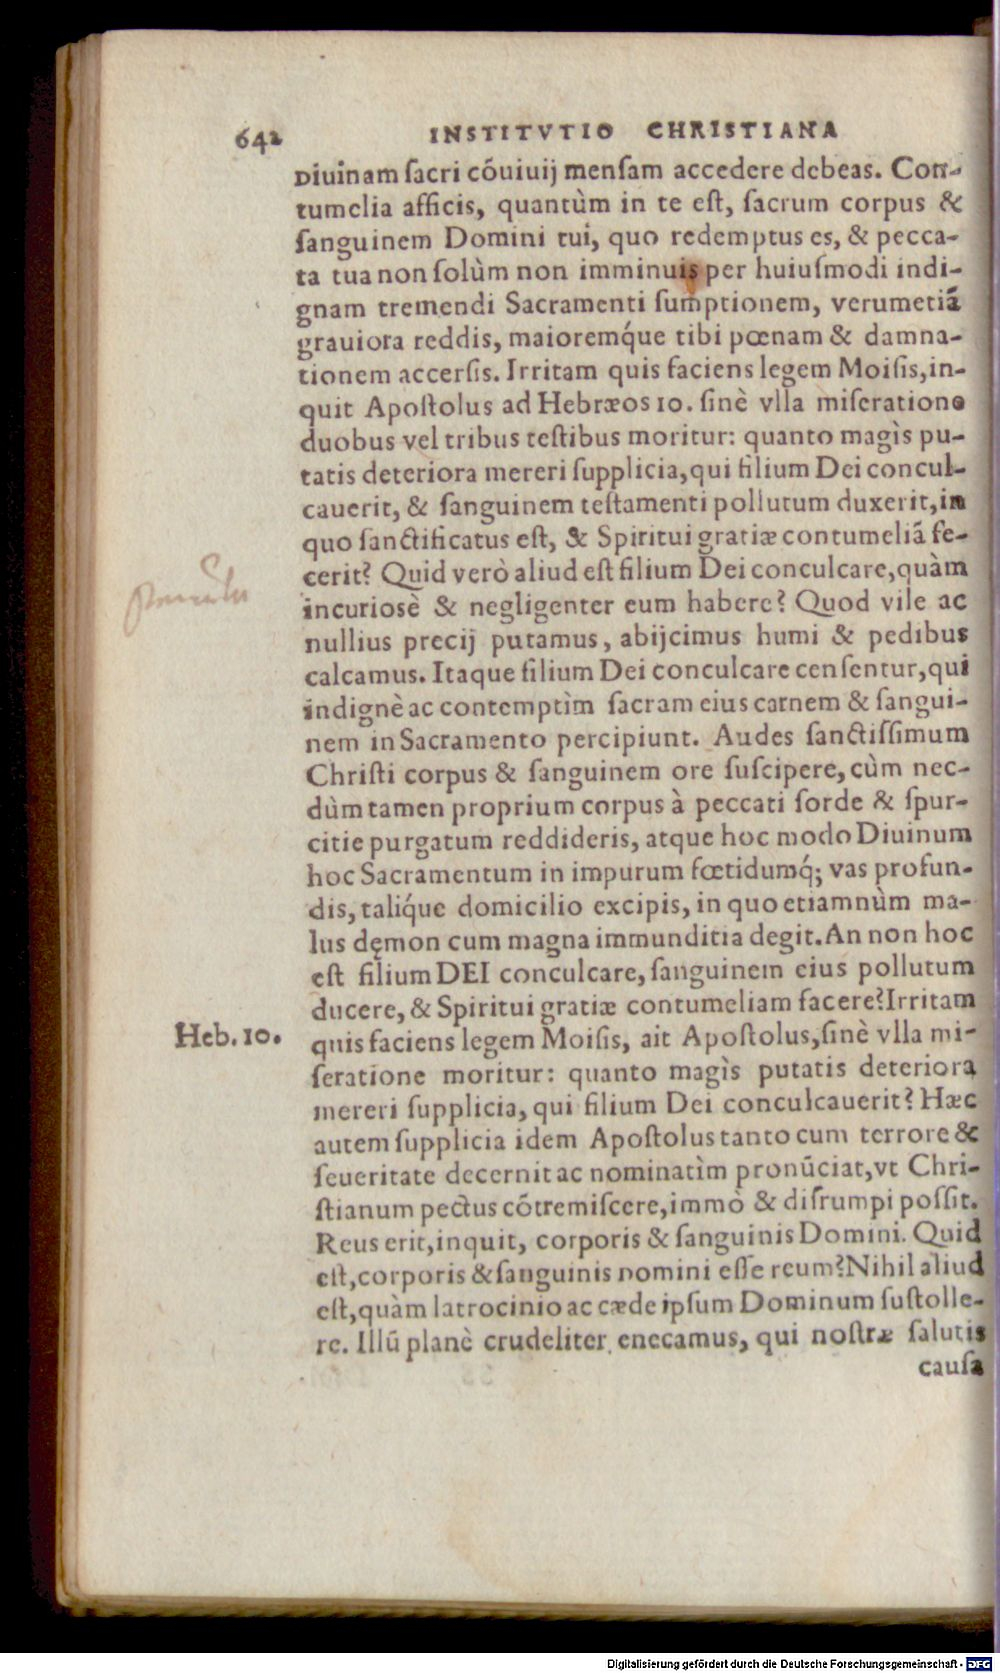 642 INSTITVTIO CHRISTIANA
Diuinam sacri cōuiuij mensam accedere debeas. Con-
tumelia afficis, quantùm in te est, sacrum corpus &
sanguinem Domini tui, quo redemptus es, & pecca-
ta tua non solùm non imminuis per huiusmodi indi-
gnam tremendi Sacramenti sumptionem, verumetiā
grauiora reddis, maioremq́ue tibi pœnam & damna-
tionem accersis. Irritam quis faciens legem Moisis, in-
quit Apostolus ad Hebræos 10. sinè vlla miseratione
duobus vel tribus testibus moritur: quanto magìs pu-
tatis deteriora mereri supplicia, qui filium Dei concul-
cauerit, & sanguinem testamenti pollutum duxerit, in
quo sanctificatus est, & Spiritui gratiæ contumeliā fe-
cerit? Quid verò aliud est filium Dei conculcare, quàm
incuriosè & negligenter eum habere? Quod vile ac
nullius precij putamus, abijcimus humi & pedibus
calcamus. Itaque filium Dei conculcare censentur, qui
indignè ac contemptìm sacram eius carnem & sangui-
nem in Sacramento percipiunt. Audes sanctissimum
Christi corpus & sanguinem ore suscipere, cùm nec-
dùm tamen proprium corpus à peccati sorde & spur-
citie purgatum reddideris, atque hoc modo Diuinum
hoc Sacramentum in impurum fœtidumq́; vas profun-
dis, taliq́ue domicilio excipis, in quo etiamnùm ma-
lus dęmon cum magna immunditia degit. An non hoc
est filium DEI conculcare, sanguinem eius pollutum
ducere, & Spiritui gratiæ contumeliam facere? Irritam
Heb. 10.
quis faciens legem Moisis, ait Apostolus, sinè vlla mi-
seratione moritur: quanto magìs putatis deteriora
mereri supplicia, qui filium Dei conculcauerit? Hæc
autem supplicia idem Apostolus tanto cum terrore &
seueritate decernit ac nominatìm pronūciat, vt Chri-
stianum pectus cōtremiscere, immò & disrumpi possit.
Reus erit, inquit, corporis & sanguinis Domini. Quid
est, corporis & sanguinis Domini esse reum? Nihil aliud
est, quàm latrocinio ac cæde ipsum Dominum sustolle-
re. Illū planè crudeliter enecamus, qui nostræ salutis
causa
Digitalisierung gefördert durch die Deutsche Forschungsgemeinschaft - DFG